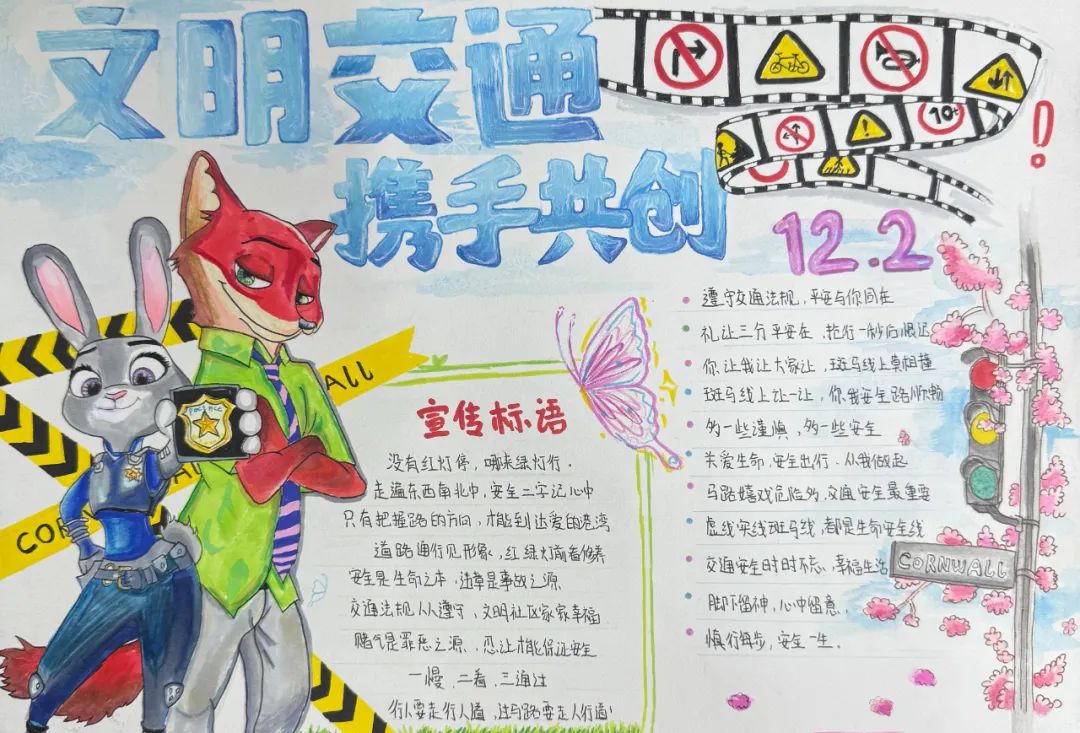 文明交通
携手共创
12.2
10t
!
宣传标语
没有红灯停，哪来绿灯行.
走遍东西南北中，安全二字记心中
只有把握路的方向，才能到达爱的港湾
道路通行见形象，红绿灯前看修养
安全是生命之本，违章是事故之源
交通法规人人遵守，文明社区家家幸福
赌气是罪恶之源、忍让才能保证安全
一慢，二看，三通过
行人要走行人道，过马路要走人行道
遵守交通法规，平安与你同在
礼让三分平安在，抢行一秒后悔迟
你让我让大家让，斑马线上莫相撞
斑马线上让一让，你我安全路顺畅
多一些谨慎，多一些安全
关爱生命，安全出行.从我做起
马路嬉戏危险多，交通安全最重要
虚线实线斑马线，都是生命安全线
交通安全时时不忘、幸福生活
脚下留神，心中留意.
慎行每步，安全一生.
CORNWALL
ALL
COR